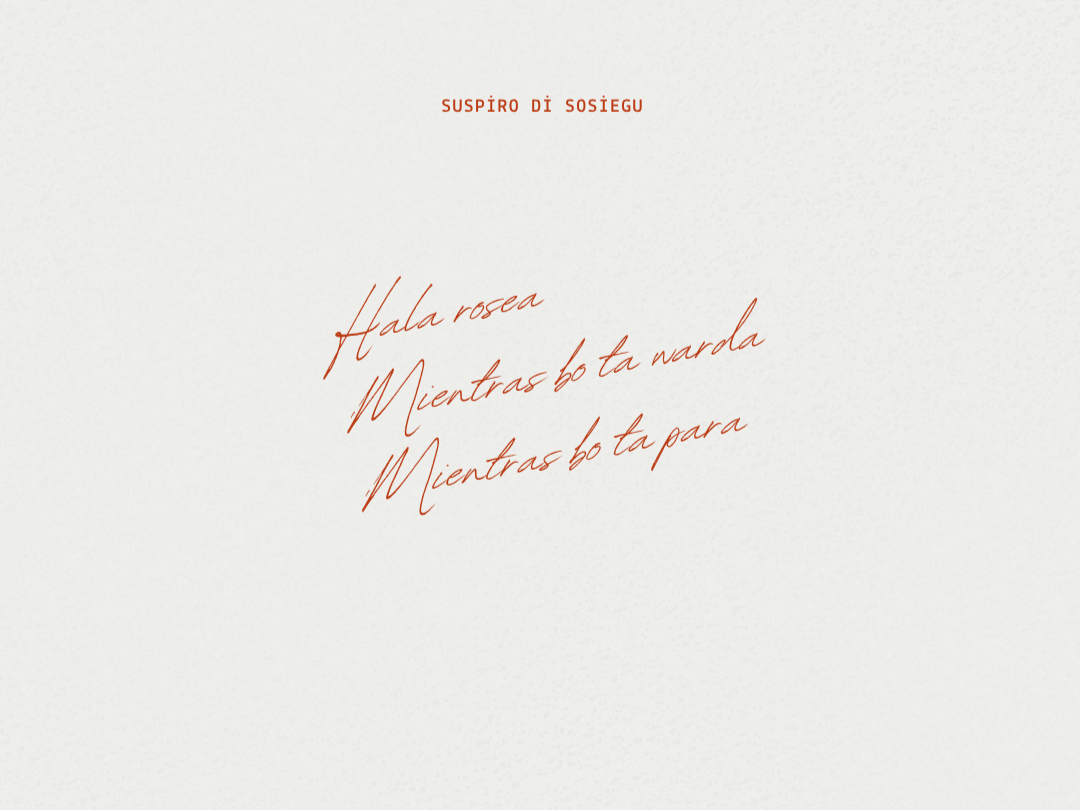 SUSPİRO Dİ SOSİEGU
Hala rosea
Mientras bo ta warda
Mientras bo ta para